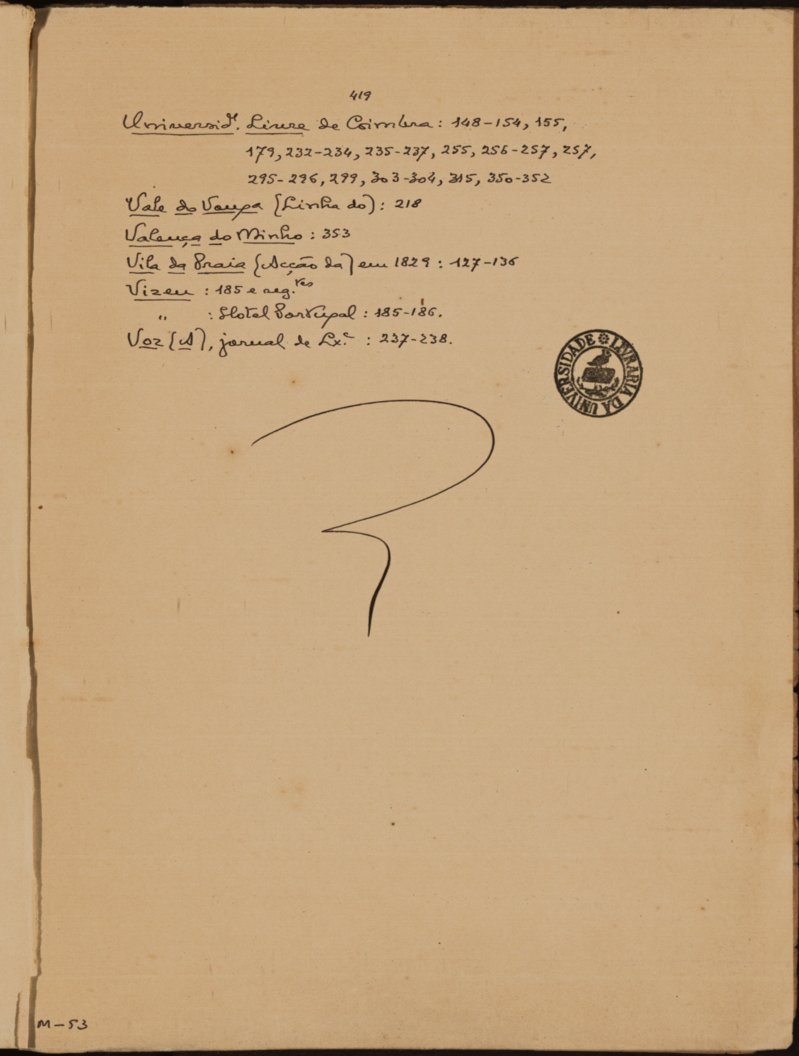 419
Universid.ᵉ Livre de Coimbra : 148-154, 155,
179, 232-234, 235-237, 255, 256-257, 257,
295-296, 299, 303-304, 315, 350-352
Vale do Vouga (Linha do) : 218
Valença do Minho : 353
Vila da Praia (Acção da) em 1829 : 127-136
Vizeu : 185 e seg.ᵗᵉˢ
" : Hotel Portugal : 185-186.
Voz (A), jornal de Lx.ª : 237-238.
LIVRARIA DA UNIVERSIDADE
M-53